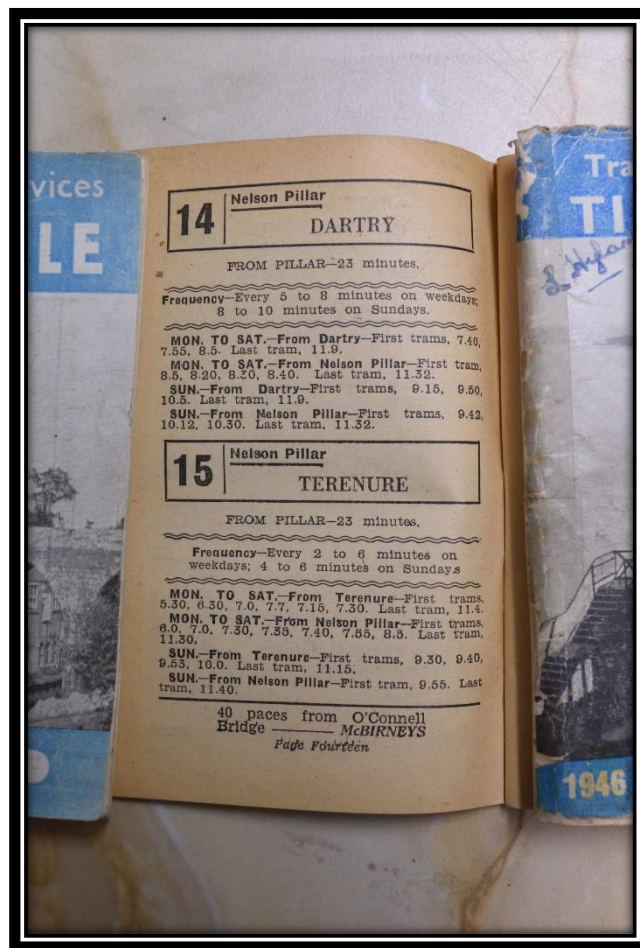 vices
LE
14
Nelson Pillar
DARTRY
FROM PILLAR—23 minutes.
Frequency—Every 5 to 8 minutes on weekdays;
8 to 10 minutes on Sundays.
MON. TO SAT.—From Dartry—First trams, 7.40,
7.55, 8.5. Last tram, 11.9.
MON. TO SAT.—From Nelson Pillar—First tram,
8.5, 8.20, 8.30, 8.40. Last tram, 11.32.
SUN.—From Dartry—First trams, 9.15, 9.50,
10.5. Last tram, 11.9.
SUN.—From Nelson Pillar—First trams, 9.42,
10.12, 10.30. Last tram, 11.32.
15
Nelson Pillar
TERENURE
FROM PILLAR—23 minutes.
Frequency—Every 2 to 6 minutes on
weekdays; 4 to 6 minutes on Sunday.s
MON. TO SAT.—From Terenure—First trams,
5.30, 6.30, 7.0, 7.7, 7.15, 7.30. Last tram, 11.4.
MON. TO SAT.—From Nelson Pillar—First trams,
6.0, 7.0, 7.30, 7.35, 7.40, 7.55, 8.5. Last tram,
11.30.
SUN.—From Terenure—First trams, 9.30, 9.40,
9.53, 10.0. Last tram, 11.15.
SUN.—From Nelson Pillar—First tram, 9.55. Last
tram, 11.40.
40 paces from O'Connell
Bridge ——— McBIRNEYS
Page Fourteen
Tra
TI
1946